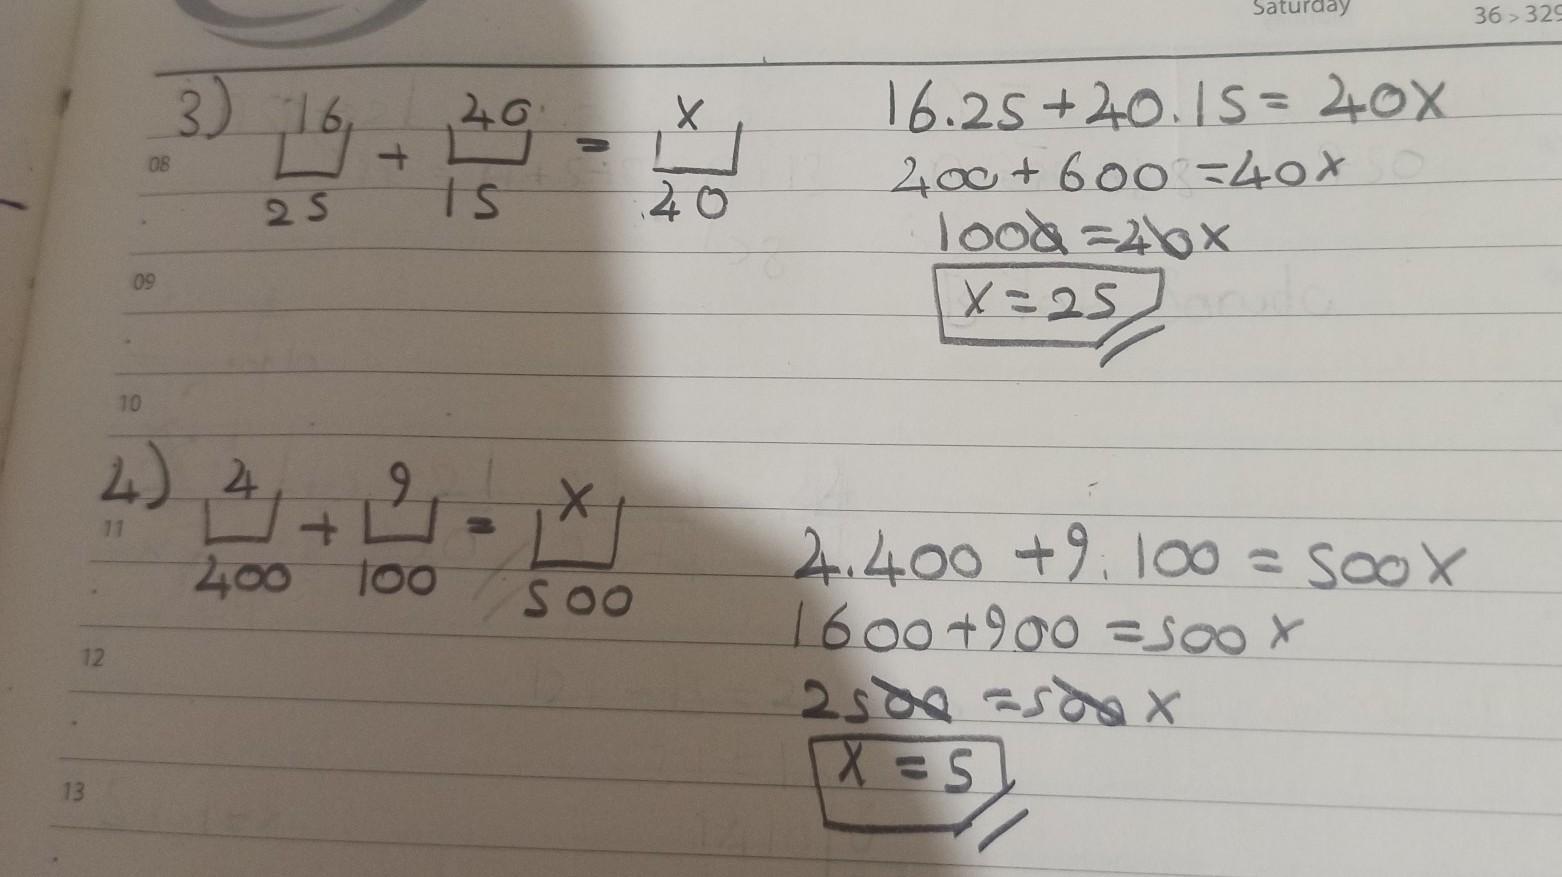 Saturday 36 > 329
3) 16 + 40 = x
25 15 40
16.25 + 40.15 = 40x
400 + 600 = 40x
1000 = 40x
x = 25
08
09
10
4) 4 + 9 = x
400 100 500
4.400 + 9.100 = 500x
1600 + 900 = 500x
2500 = 500x
x = 5
11
12
13